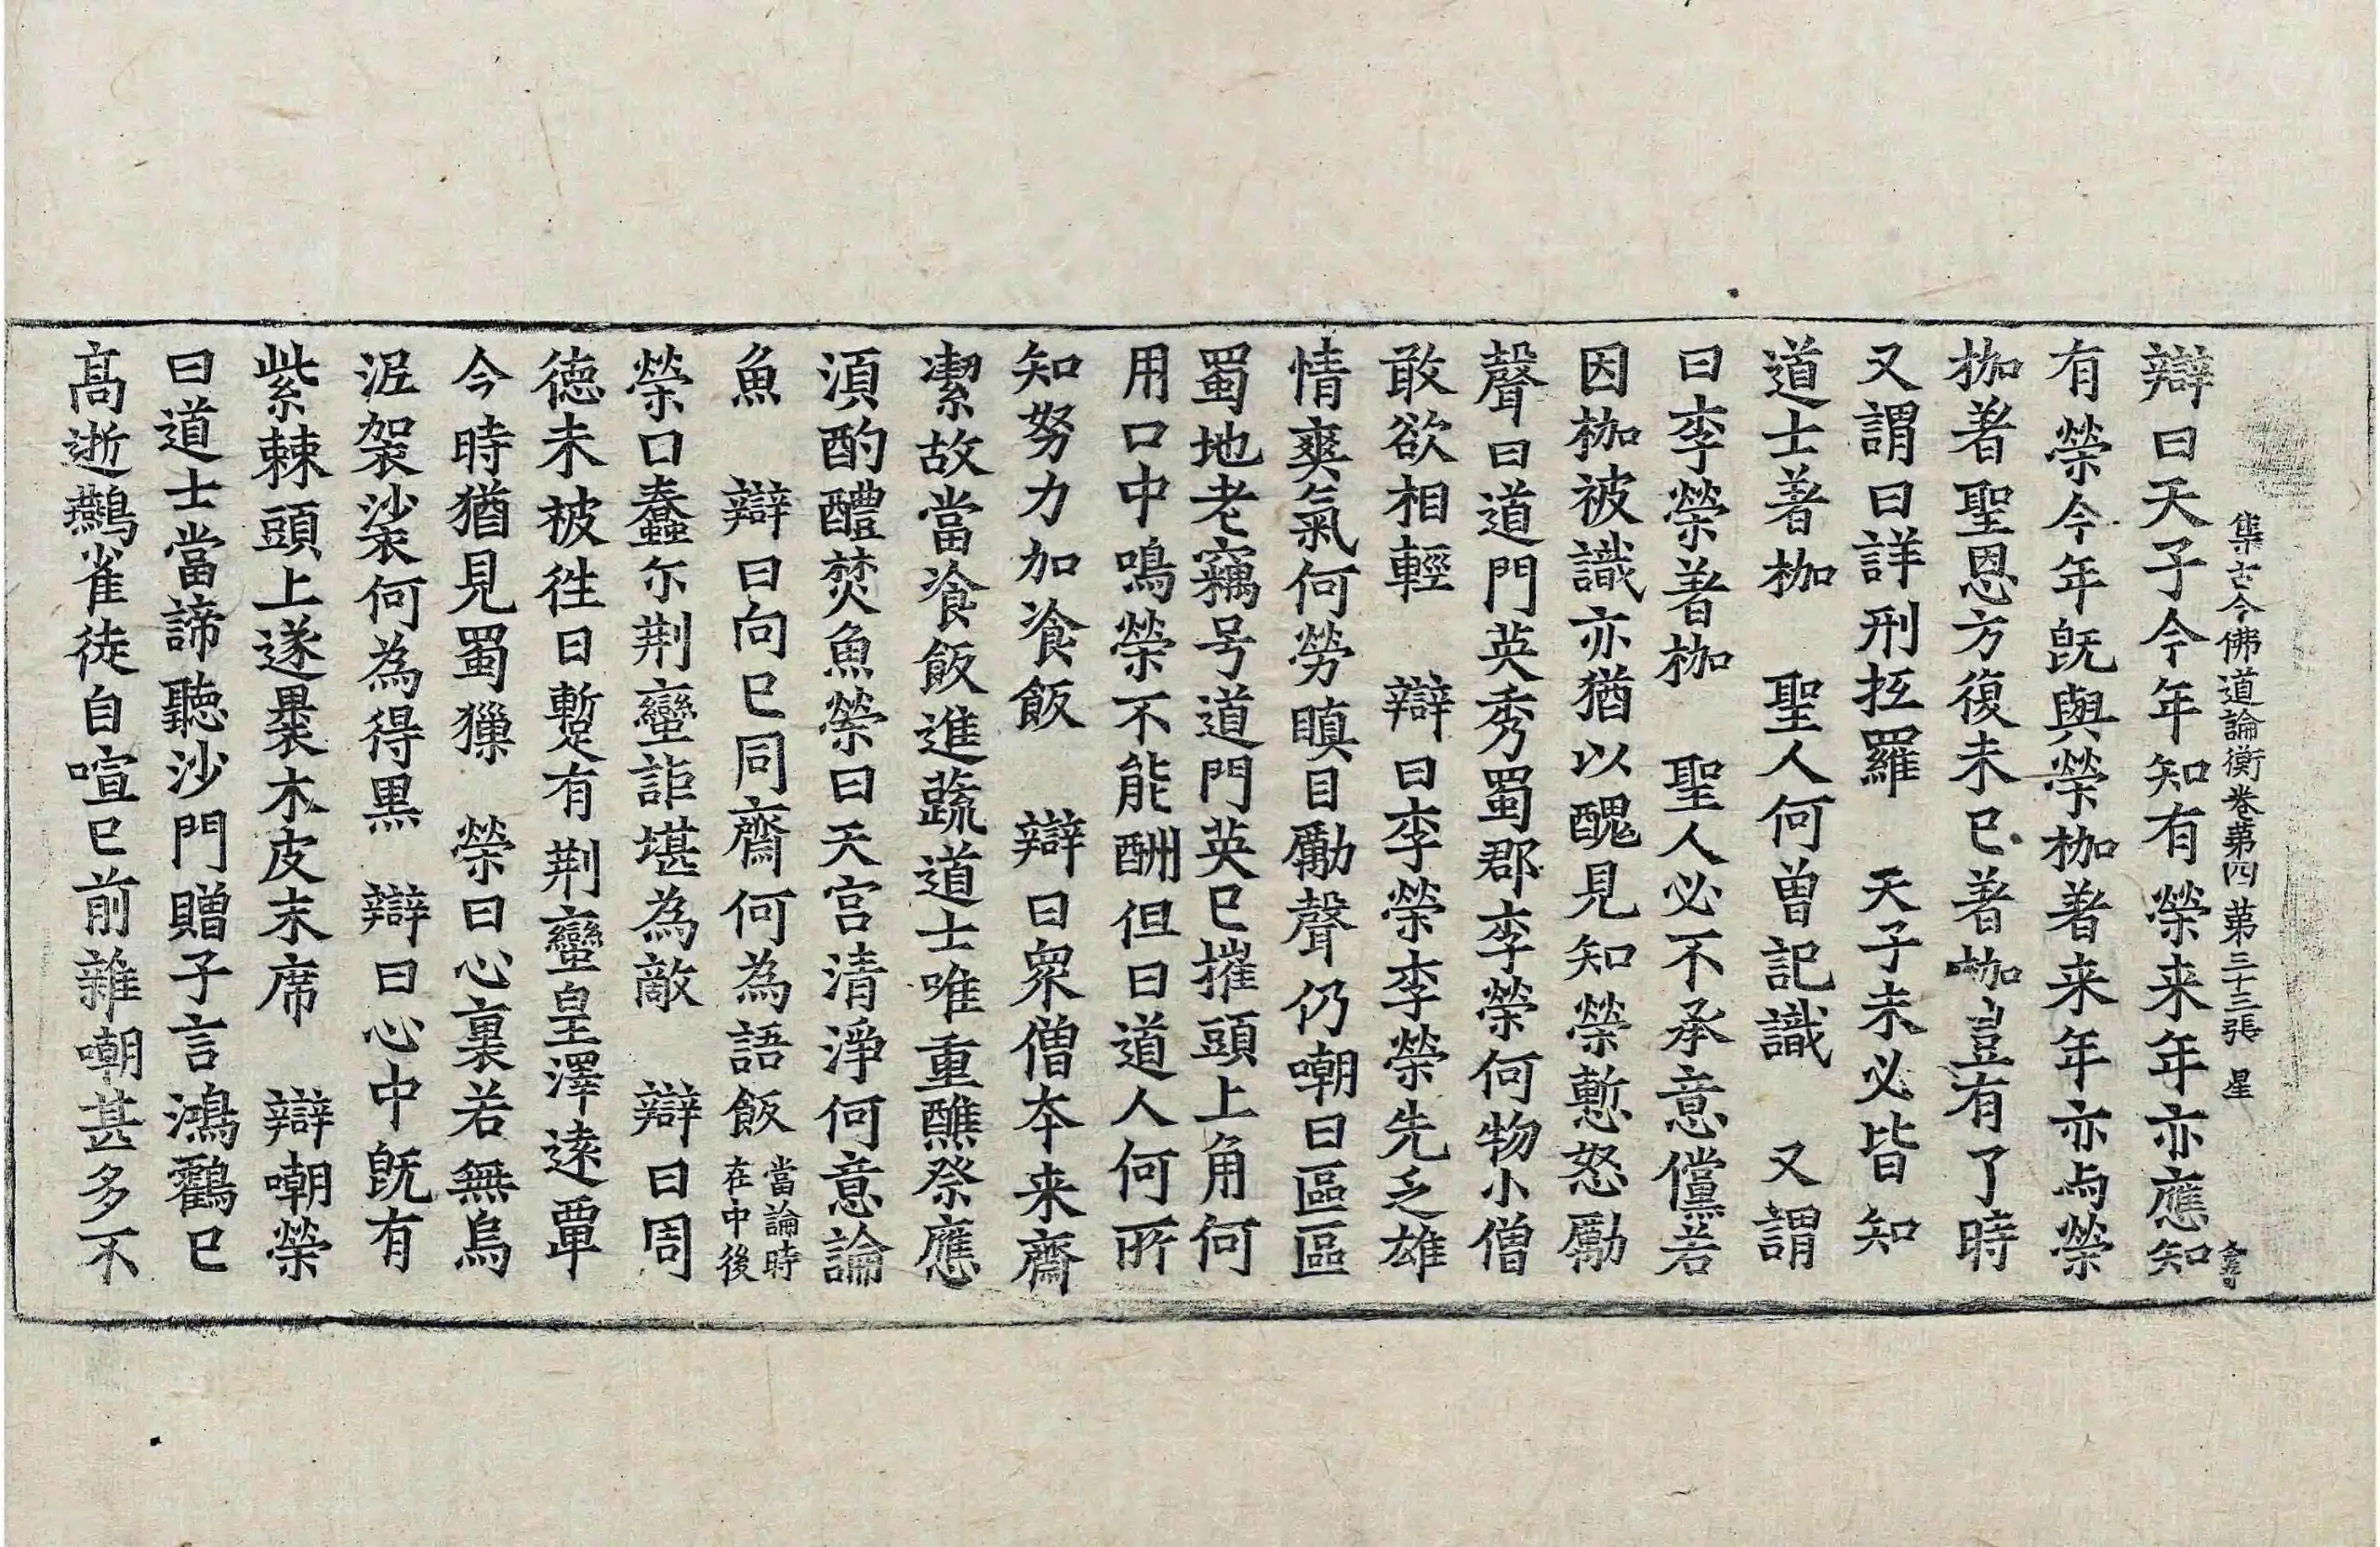 集古今佛道論衡卷苐四 苐三十三張 星
辯曰天子今年知有榮来年亦應知
有榮今年旣與榮枷著来年亦与榮
枷著聖恩方復未已著枷豈有了時
又謂曰詳刑抂羅 天子未必皆知
道士著枷 聖人何曾記識 又謂
曰李榮著枷 聖人必不承意儻若
因枷被識亦猶以醜見知榮慙怒勵
聲曰道門英秀蜀郡李榮何物小僧
敢欲相輕 辯曰李榮李榮先乏雄
情爽氣何勞瞋目勵聲仍嘲曰區區
蜀地老竊号道門英已摧頭上角何
用口中鳴榮不能酬但曰道人何所
知努力加飡飯 辯曰衆僧夲来齋
潔故當飡飯進蔬道士唯重醮祭應
湏酌醴焚魚榮曰天宫清淨何意論
魚 辯曰向已同齋何為語飯當論時在中後
榮口蠢尓荆蠻詎堪為敵 辯曰周
德未被徃日暫有荆蠻皇澤逺覃
今時猶見蜀獠 榮曰心裏若無烏
泥袈裟何為得黒 辯曰心中旣有
紫棘頭上遂裹木皮末席 辯嘲榮
曰道士當諦聽沙門贈子言鴻鸖已
髙逝鷰雀徒自喧已前雜嘲甚多不